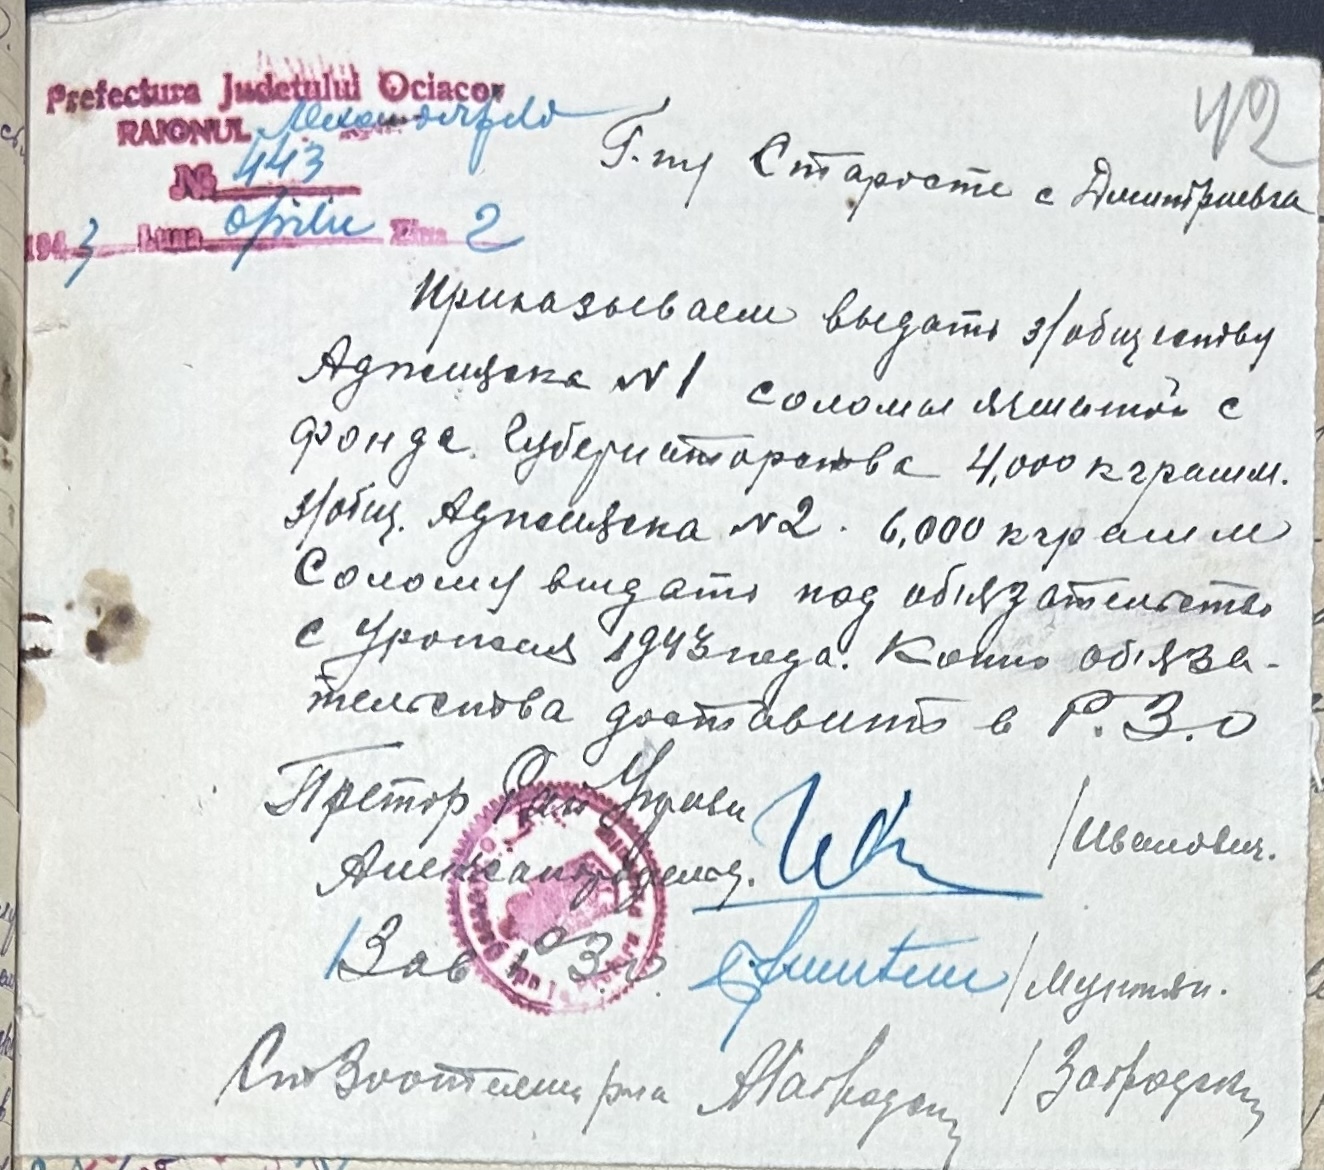 42
Prefectura Judetului Ociacov
RAIONUL
№ 443
1943 Luna Aprilie Ziua 2
Г-ну Старосте с Дмитриевка
Приказываем выдать з/обществу
Аджияска №1 соломы ячменной с
фонда Губернаторства 4,000 кграмм.
з/общ. Аджияска №2. 6,000 кграмм
Солому выдать под обязательство
с урожая 1943 года. Копию обяза-
тельства доставить в Р.З.О
Претор Рай Управы
Александрфельд. /Иванович.
Зав Р.З.О. /Мунтян.
Ст Зоотехник р-на /Загродский